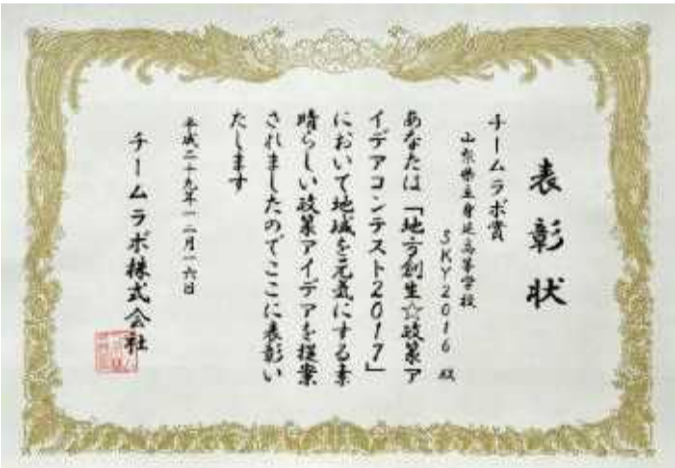 表彰状
チームラボ賞
山梨県立身延高等学校
SKY2016 殿
あなたは「地方創生☆政策ア
イデアコンテスト2017」
において地域を元気にする素
晴らしい政策アイデアを提案
されましたのでここに表彰い
たします
平成二十九年一二月一六日
チームラボ株式会社